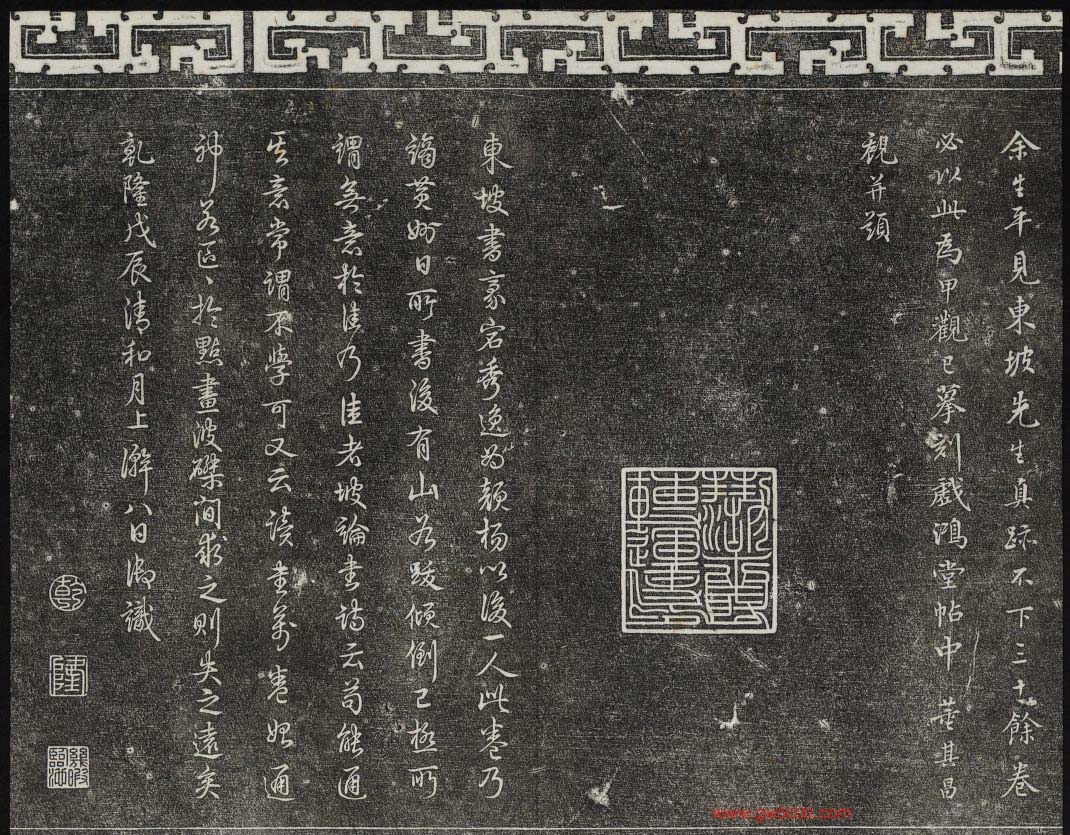 余生平見東坡先生真跡不下三十餘卷
必以此為甲觀已摹刻戲鴻堂帖中 董其昌
觀并題
東坡書豪宕秀逸為顏楊以後一人此卷乃
謫黃州日所書後有山谷跋傾倒已極所
謂無意於佳乃佳者坡論書詩云苟能通
其意常謂不學可又云讀書萬卷始通
神若區區於點畫波磔間求之則失之遠矣
乾隆戊辰清和月上澣八日御識
乾
隆